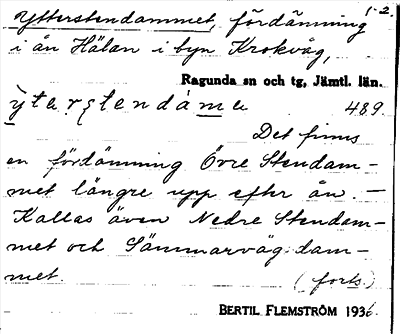 1-2.
Ytterstendammet, fördämning
i ån Hälan i byn Krokvåg,
Ragunda sn och tg, Jämtl. län.
489.
Det finns
en fördämning Övre Stendam-
met längre upp efter ån. —
Kallas även Nedre Stendam-
met och dam-
met. (forts.)
BERTIL FLEMSTRÖM 1936.